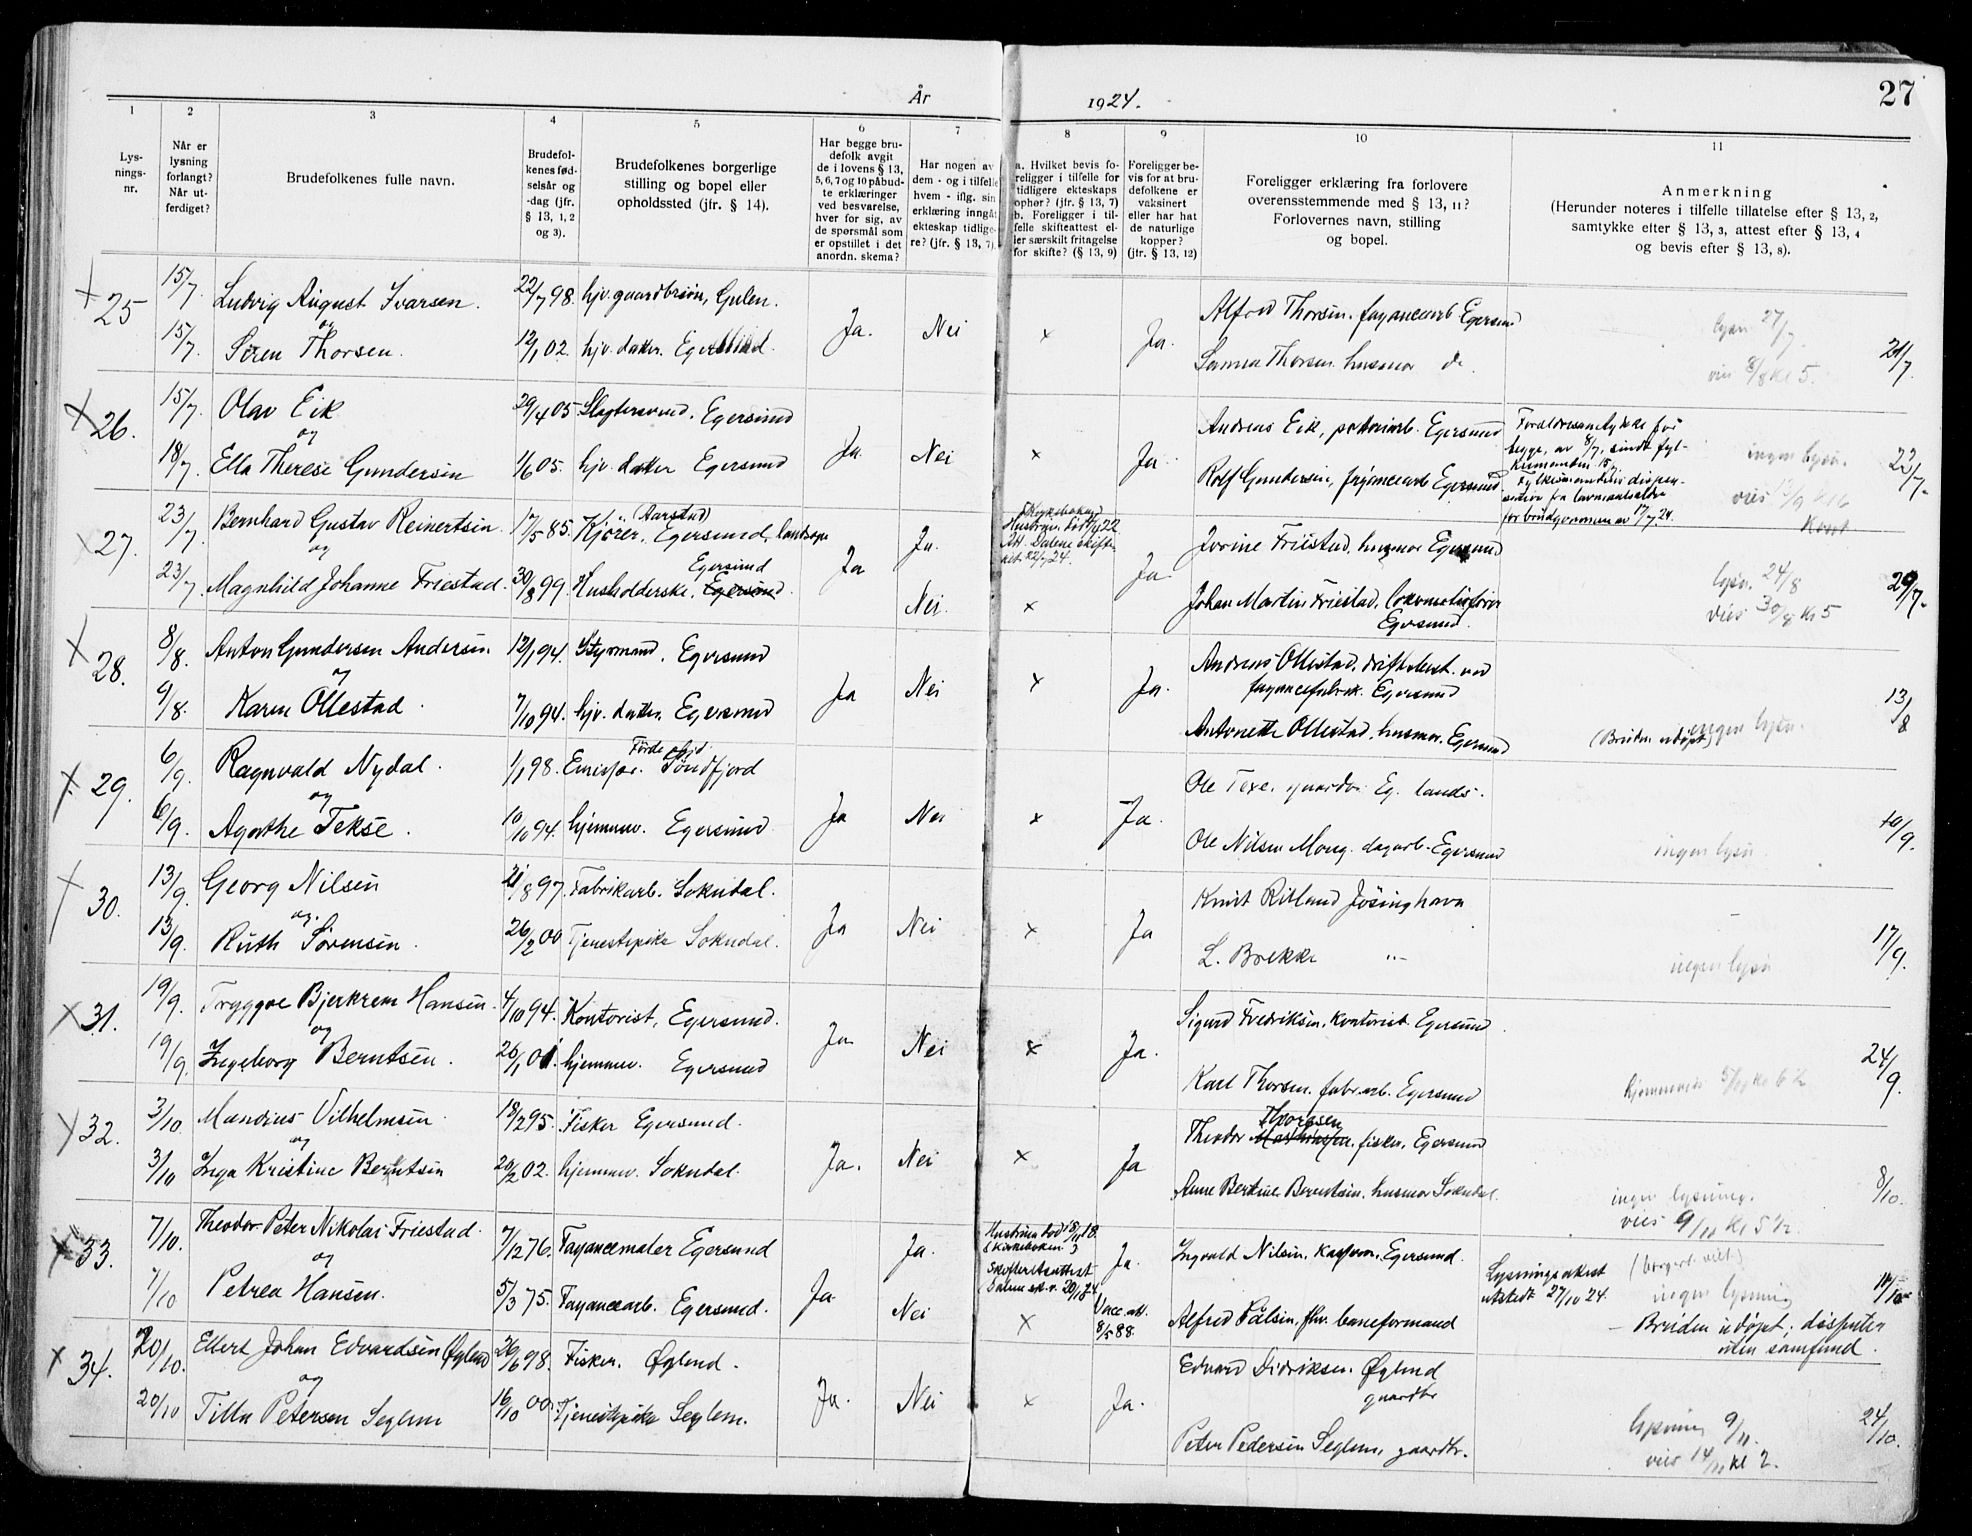 År 1924. 27
1 2 3 4 5 6 7 8 9 10 11
Lys-
nings-
nr.
Når er
lysning
forlangt?
Når ut-
ferdiget?
Brudefolkenes fulle navn.
Brudefol-
kenes fød-
selsår og
-dag (jfr.
§ 13, 1, 2
og 3).
Brudefolkenes borgerlige
stilling og bopel eller
opholdssted (jfr. § 14).
Har begge bru-
defolk avgit
de i lovens § 13,
5, 6, 7 og 10 påbud-
te erklæringer
ved besvarelse,
hver for sig, av
de spørsmål som
er opstillet i det
anordn. skema?
Har nogen av
dem - og i tilfelle
hvem - iflg. sin
erklæring inngåt
ekteskap tidlige-
re? (jfr. § 13, 7).
a. Hvilket bevis fo-
religger i tilfelle for
tidligere ekteskaps
ophør? (jfr. § 13, 7)
b. Foreligger i til-
felle skifteattest el-
ler særskilt fritagelse
for skifte? (§ 13, 9)
Foreligger be-
vis for at bru-
defolkene er
vaksinert
eller har hat
de naturlige
kopper?
(jfr. § 13, 12)
Foreligger erklæring fra forlovere
overensstemmende med § 13, 11?
Forlovernes navn, stilling
og bopel.
Anmerkning
(Herunder noteres i tilfelle tillatelse efter § 13, 2,
samtykke efter § 13, 3, attest efter § 13, 4
og bevis efter § 13, 8).
x 25 15/7. Ludvig August Ivarsen. 22/7 98. hjv. gaardbr.søn, Gulen.
og Ja. Nei x Ja.
15/7. Siren Thorsen. 12/1 02. hjv. datter. Egersund.
Alfred Thorsen. fayancearb Egersund
Sanna Thorsen. husmor do.
lysn 27/7.
vies 8/8 kl 5. 21/7.
x 26. 15/7. Olav Eik 29/4 05. Slagtersvend. Egersund
og Ja Nei x Ja.
18/7. Ella Therese Gundersen 1/6 05. hjv. datter Egersund
Andreas Eik, pottemarb. Egersund
Rolf Gundersen, fayancearb Egersund.
Forældresamtykke for
begge, av 8/7, sendt fyl-
kesmanden 15/7.
Fylkesmandens dispen-
sation fra lavmaalsalder
for brudgommen av 17/7 24.
ingen lysn. 22/7.
x 27. 23/7. Bernhard Gustav Reinertsen. 17/5 85. Kjører, (Aarstad) Egersund landsogn
og Ja Ja.
23/7. Magnhild Johanne Friestad. 30/8 99. Husholderske. Egersund
Nei. x Ja.
Jorine Friestad, husmor Egersund
Johan Martin Friestad, lokomotivfører
Egersund.
lysn. 24/8
vies 30/8 kl 5 29/7.
x 28. 8/8. Anton Gundersen Andersen. 12/1 94. Styrmand. Egersund
og Ja Nei x Ja.
9/8. Karen Ollestad. 7/10 94. hjv. datter. Egersund
Andreas Ollestad. driftsbest. ved
fayancefabrik. Egersund
Antonette Ollestad, husmor. Egersund
(Bruden udøpt) ingen lysn. 13/8
x 29. 6/9. Ragnvald Nydal. 1/1 98. Emissær. Søndfjord
og Ja Nei x Ja.
6/9. Agathe Tekse. 10/10 94. hjemmev. Egersund
Ole Texe. gaardbr. Eg. lands.
Ole Nilsen Mong. dagarb. Egersund
ingen lysn 10/9.
x 30. 13/9. Georg Nilsen 21/8 97. Fabrikarb. Sokndal.
og. Ja Nei x Ja
13/9. Ruth Sørensen. 26/2 00 Tjenestepike Sokndal.
Knut Risland Jøsinghavn
L. Brekke "
ingen lysn 17/9.
x 31. 19/9. Tryggve Bjerkrem Hansen. 4/10 94. Kontorist, Egersund.
og Ja Nei x Ja.
19/9. Ingeborg Berntsen. 26/1 01. hjemmev. Egersund
Sigurd Fredriksen. Kontorist. Egersund.
Karl Thorsen. fabr.arb. Egersund
24/9.
x 32. 3/10. Mandius Vilhelmsen. 18/2 95. Fisker Egersund.
og Ja. Nei x Ja
3/10 Inga Kristine Berntsen 20/2 02. hjemmev. Sokndal.
Theodor Thorsen. fisker, Egersund
Anne Bertine Berentsen. husmor Sokndal.
ingen lysning.
vies 9/10 kl 5 1/2 8/10.
x 33. 7/10. Theodor Peter Nikolai Friestad. 7/12 76. Fayancemaler Egersund
og Ja Ja.
7/10 Petrea Hansen. 5/3 75. Fayancearb. Egersund.
Nei x Ja.
Vacc. att.
8/5 88.
Ingvald Nilsen. Egersund.
Alfred Pålsen, fhv. baneformand
Lysningsattest
utstedt 27/10 24.
(borgerl. viet)
ingen lysning
- Bruden udøpt; dissenter
uten samfund.
x 34. 20/10. Ellert Johan Edvardsen Øglend 26/6 98. Fisker. Øglend.
og Ja. Nei x Ja.
20/10 Tilla Petersen Seglem 16/10 00. Tjenestepike Seglem.
Edvard Didriksen. Øglend
gaardbr
Peter Pedersen Seglem, gaardbr.
lysning 9/11.
vies 14/11 kl 2. 24/10.